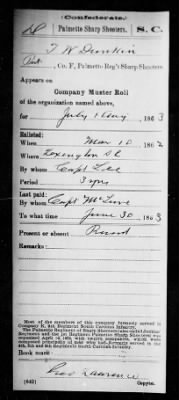 (Confederate.)
D Palmetto Sharp Shooters. S. C.
T W Dunkin
Pvt., Co. F, Palmetto Reg't Sharp Shooters.
Appears on
Company Muster Roll
of the organization named above,
for July & Aug, 1863
Enlisted:
When Mar 10, 1862
Where Lexington S C
By whom Capt Lee
Period 3 yrs
Last paid:
By whom Capt McLure
To what time June 30, 1863
Present or absent Present
Remarks:
Book mark:
(642) Copyist.